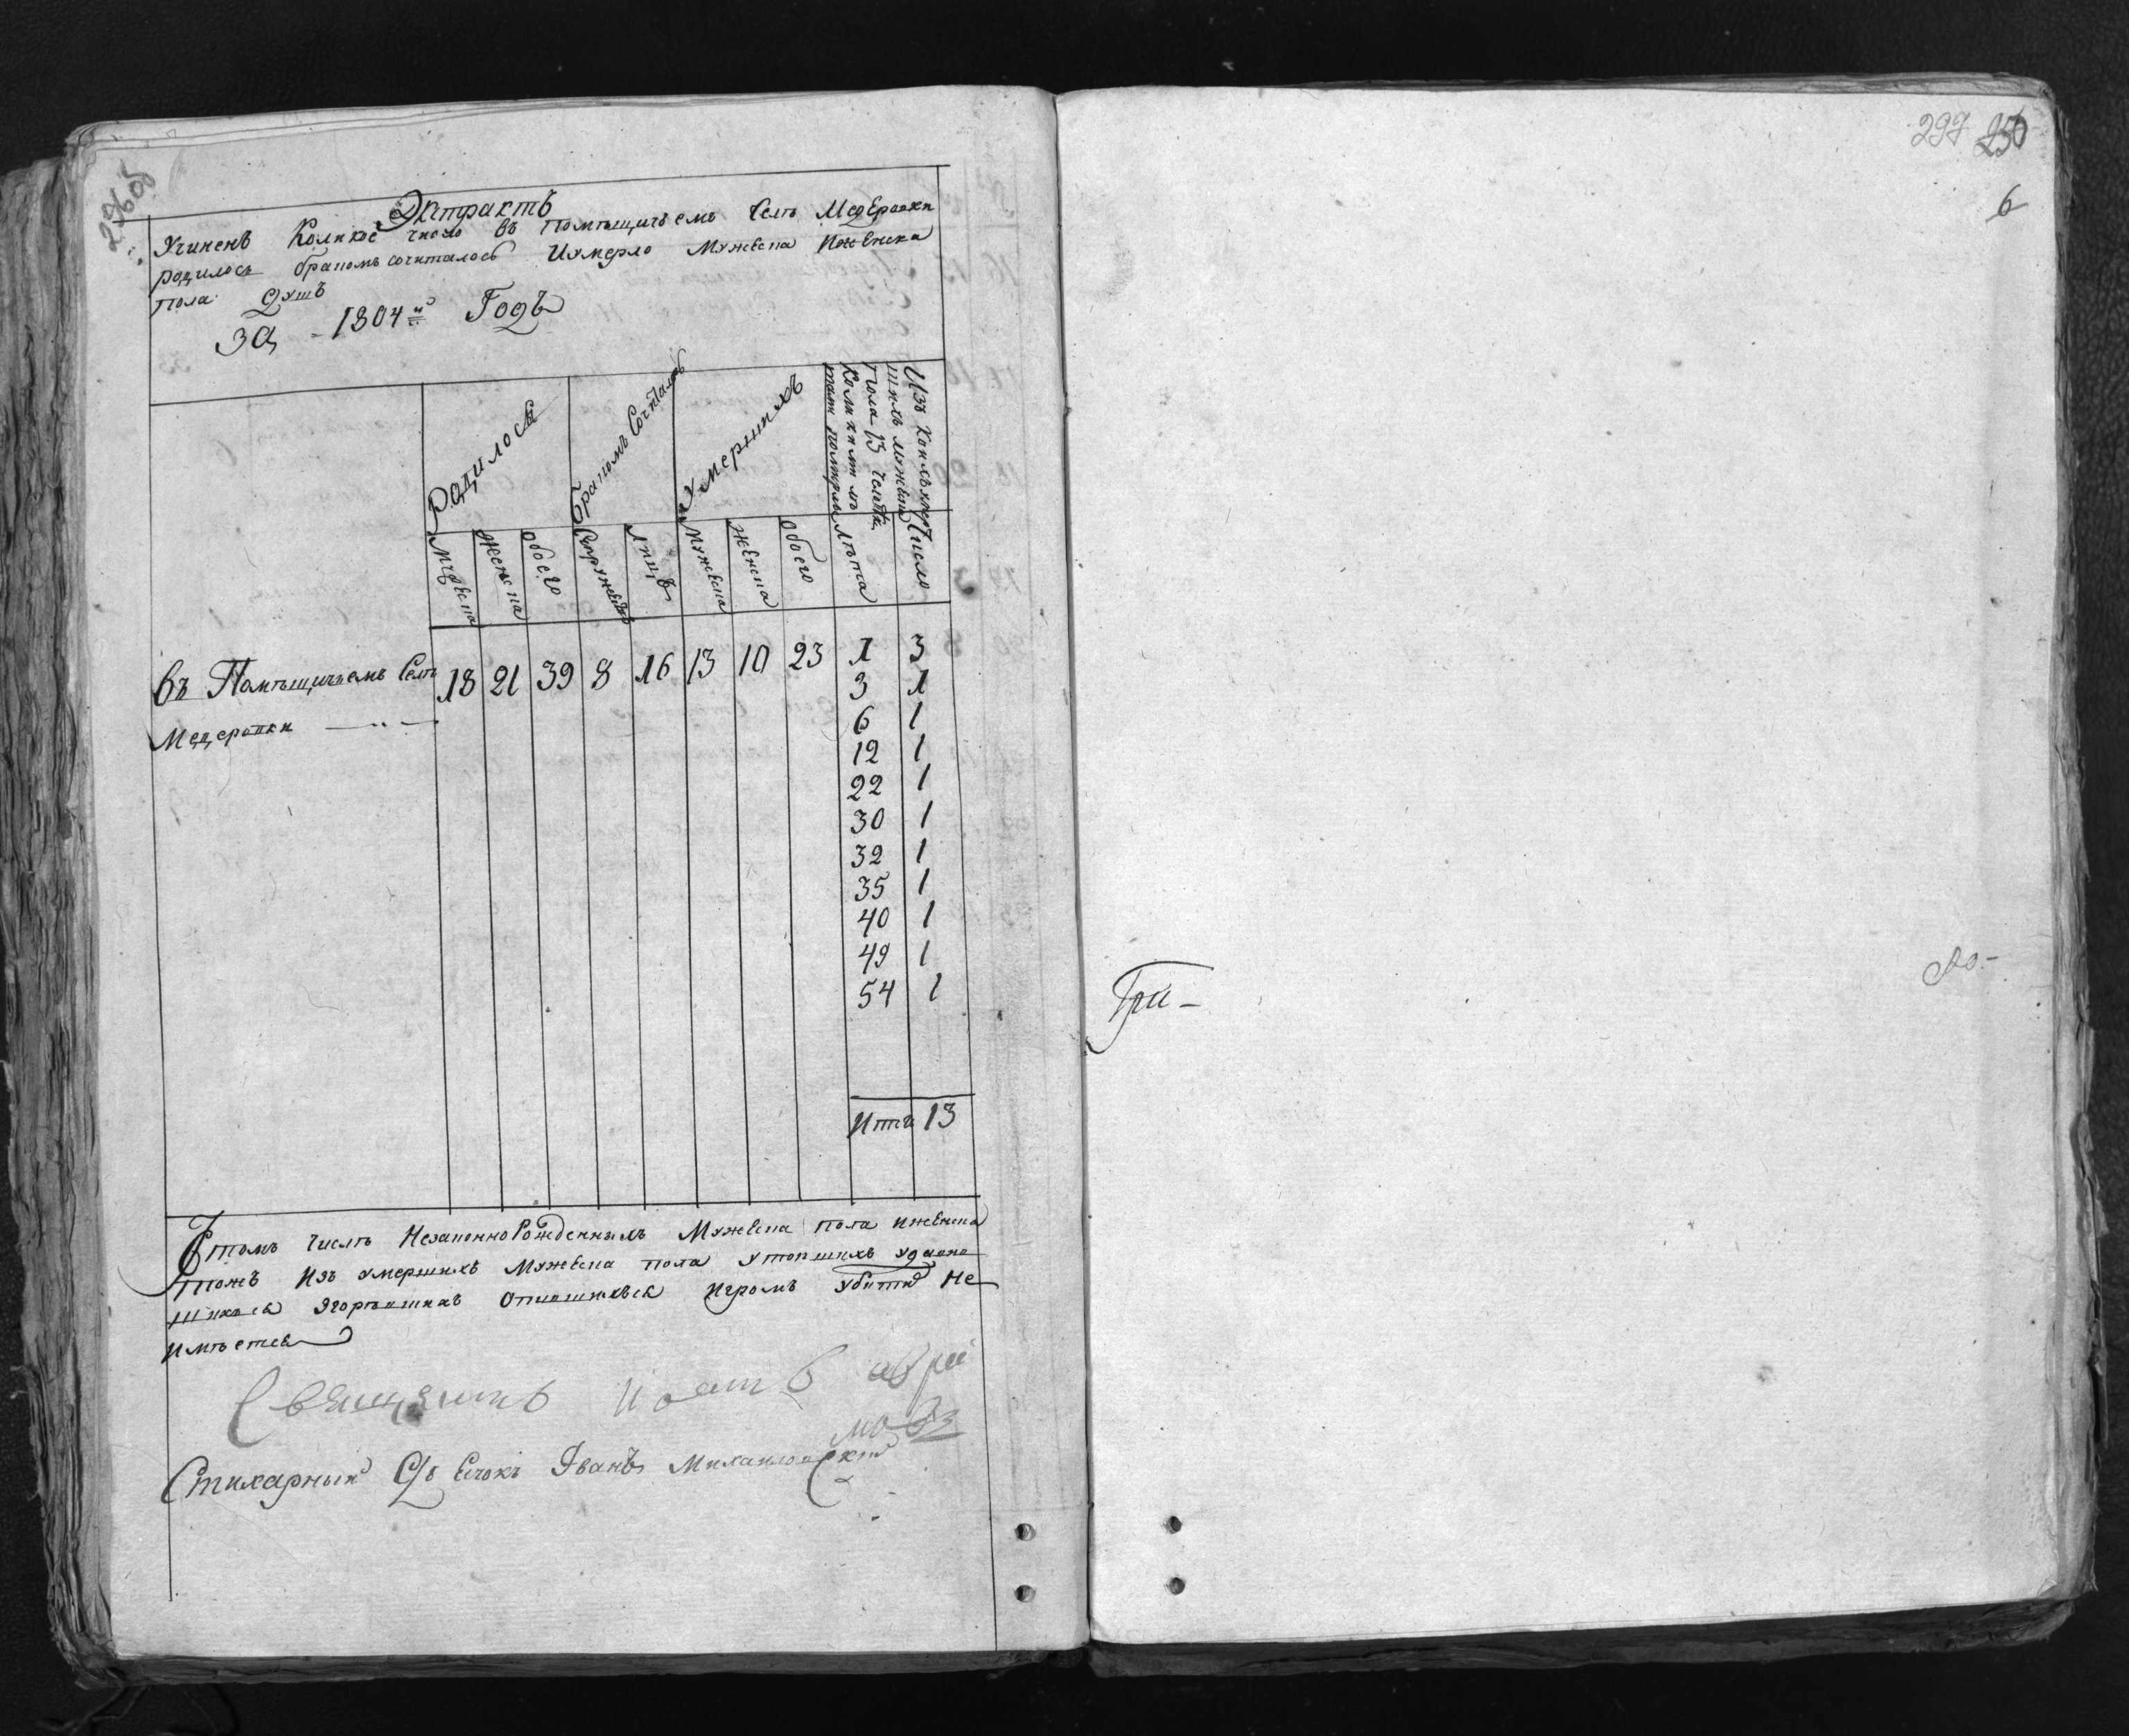 296об
Экстрактъ
Учиненъ Коликое число въ Помѣщичьемъ Селѣ Медеровки
родилось бракомъ сочиталось Иумерло Мужеска Иженска
пола Душъ
За 1804й Годъ
Родилось
Бракомъ Сочталось
Умершихъ
Изъ Коихъ умер
шихъ мужеска
Пола 13 человѣкъ
Мужеска
Женска
Обоего
Супружествъ
Лицъ
Мужеска
Женска
Обоего
Лѣта
Число
Въ Помѣщичьемъ Селѣ 18 21 39 8 16 13 10 23 1 3
Медеровки 3 1
6 1
12 1
22 1
30 1
32 1
35 1
40 1
49 1
54 1
Итго 13
Втомъ Числѣ Незаконно Рожденныхъ Мужеска пола иженска
тожъ Изъ умершихъ Мужеска пола утопшихъ удавив
шихся Згорѣвшихъ Опившихся Игромъ убиты Не
имѣется
Священникъ
Стихарный Дьячокъ Іванъ Михаиловскій
297 250
6
Гри-